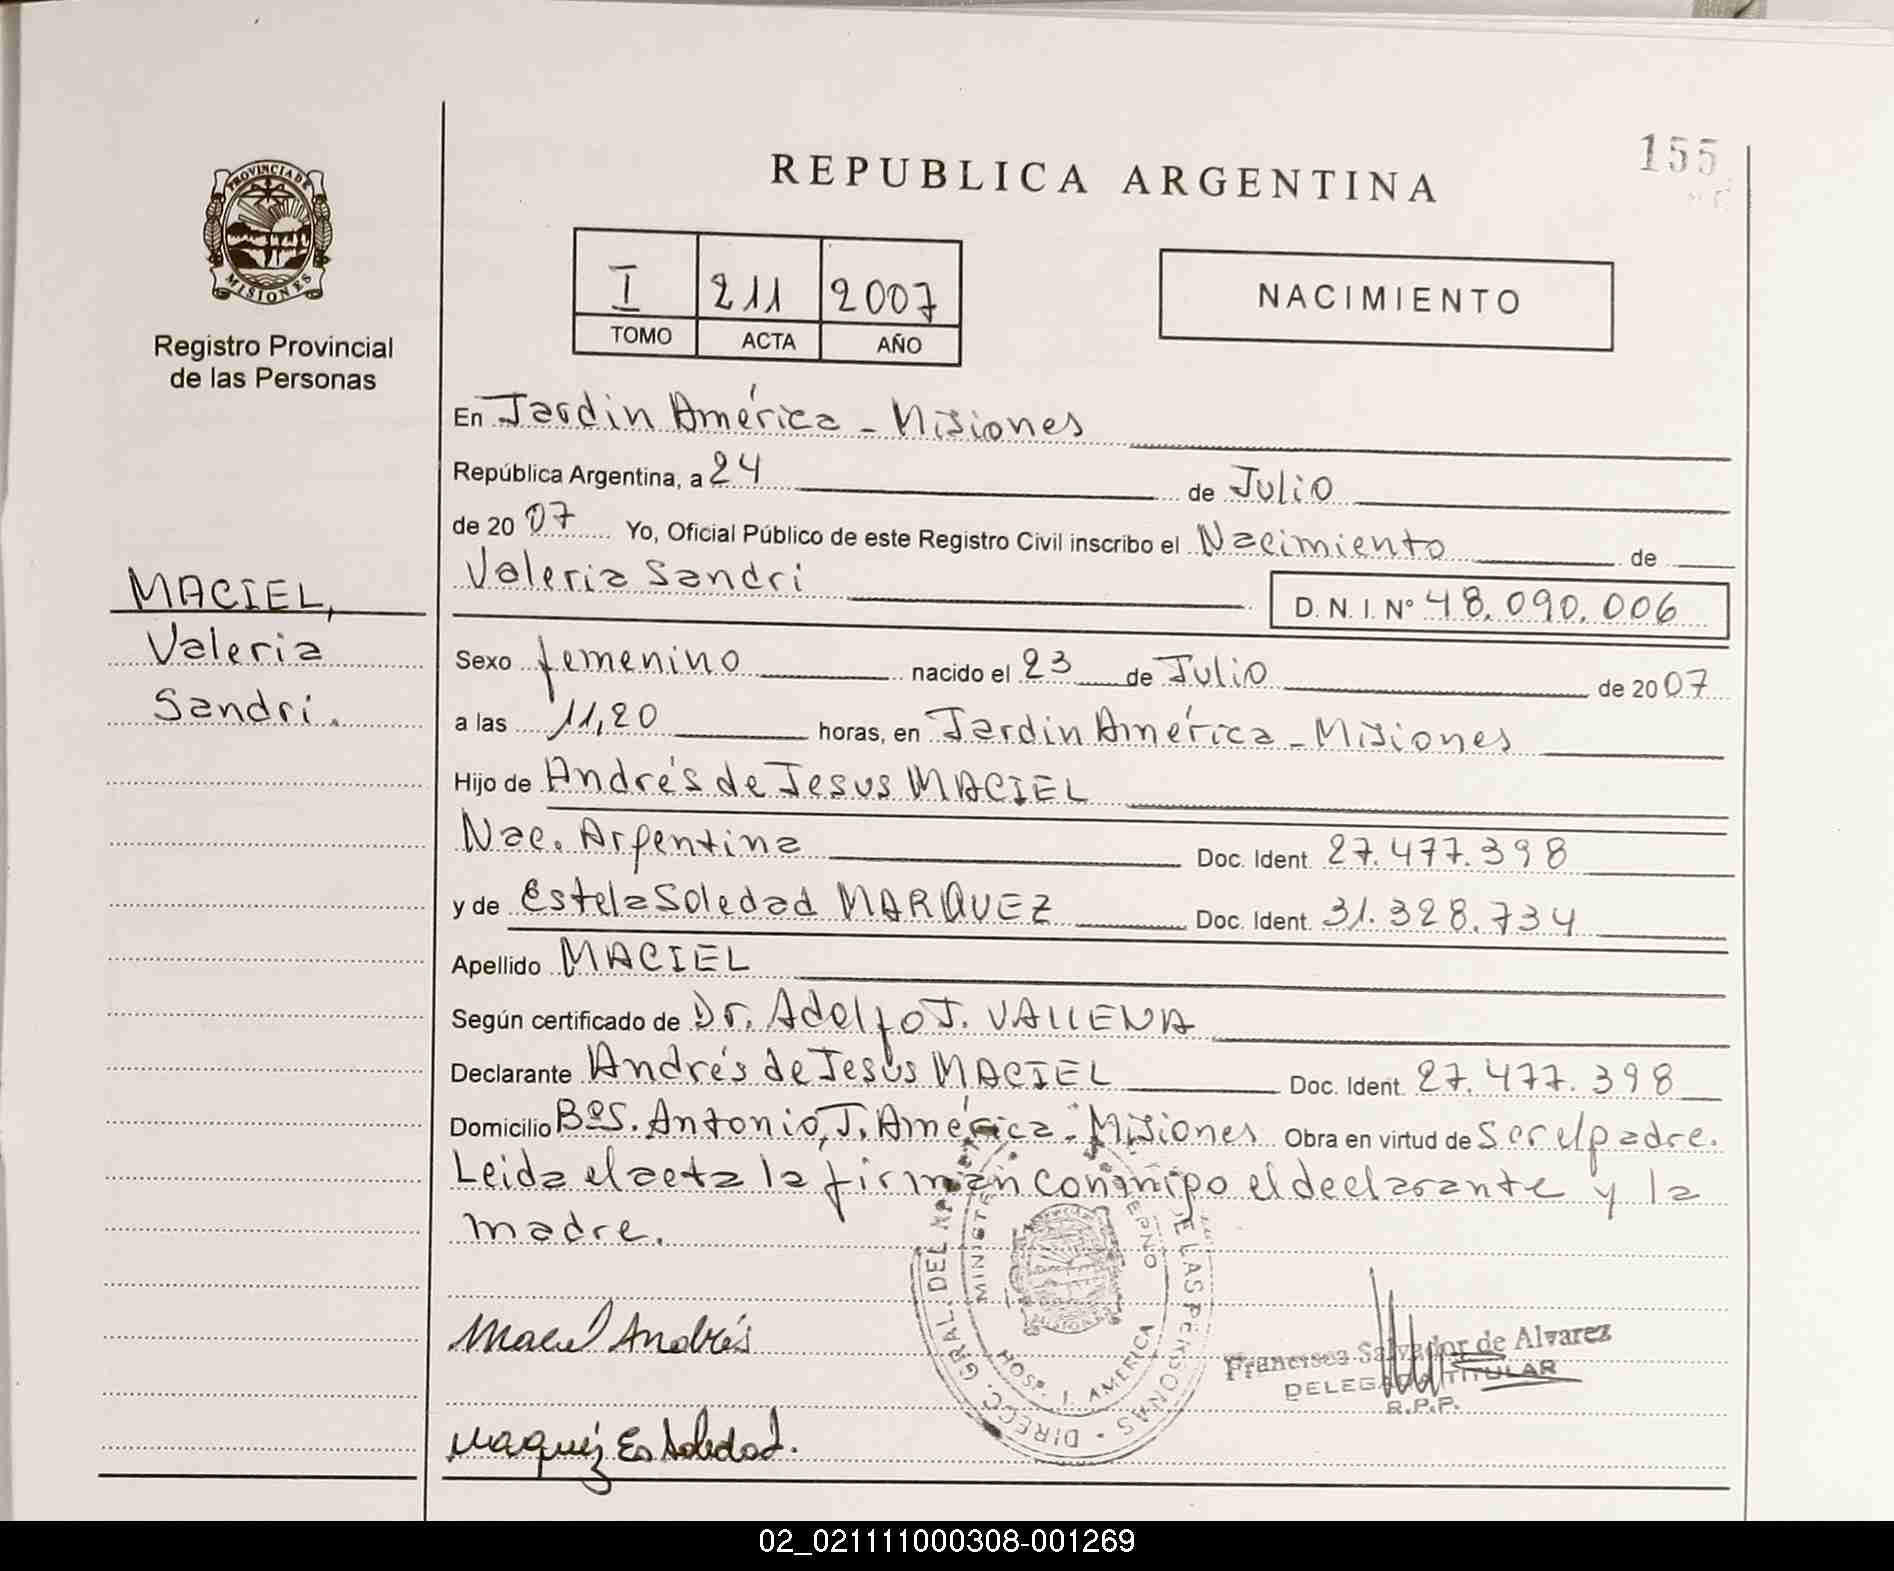 155
REPUBLICA ARGENTINA
PROVINCIA DE
MISIONES
Registro Provincial
de las Personas
I 211 2007
TOMO ACTA AÑO
NACIMIENTO
MACIEL,
Valeria
Sandri.
En Jardin América - Misiones
República Argentina, a 24 de Julio
de 2007 Yo, Oficial Público de este Registro Civil inscribo el Nacimiento de
Valeria Sandri D. N. I. N° 48.090.006
Sexo femenino nacido el 23 de Julio de 2007
a las 11,20 horas, en Jardin América - Misiones
Hijo de Andrés de Jesus MACIEL
Nac. Argentina Doc. Ident. 27.477.398
y de Estela Soledad MARQUEZ Doc. Ident. 31.328.734
Apellido MACIEL
Según certificado de Dr. Adolfo J. VALLENA
Declarante Andrés de Jesús MACIEL Doc. Ident. 27.477.398
Domicilio Bº S. Antonio, J. América - Misiones Obra en virtud de Ser el padre.
Leida el acta la firman conmigo el declarante y la
madre.
Maciel Andrés
DIRECC. GRAL. DEL DE LAS PERSONAS
HOSP. J. AMERICA
Francisca Salvador de Alvarez
DELEGADA TITULAR
R.P.P.
Maquez Es Soledad.
02_021111000308-001269